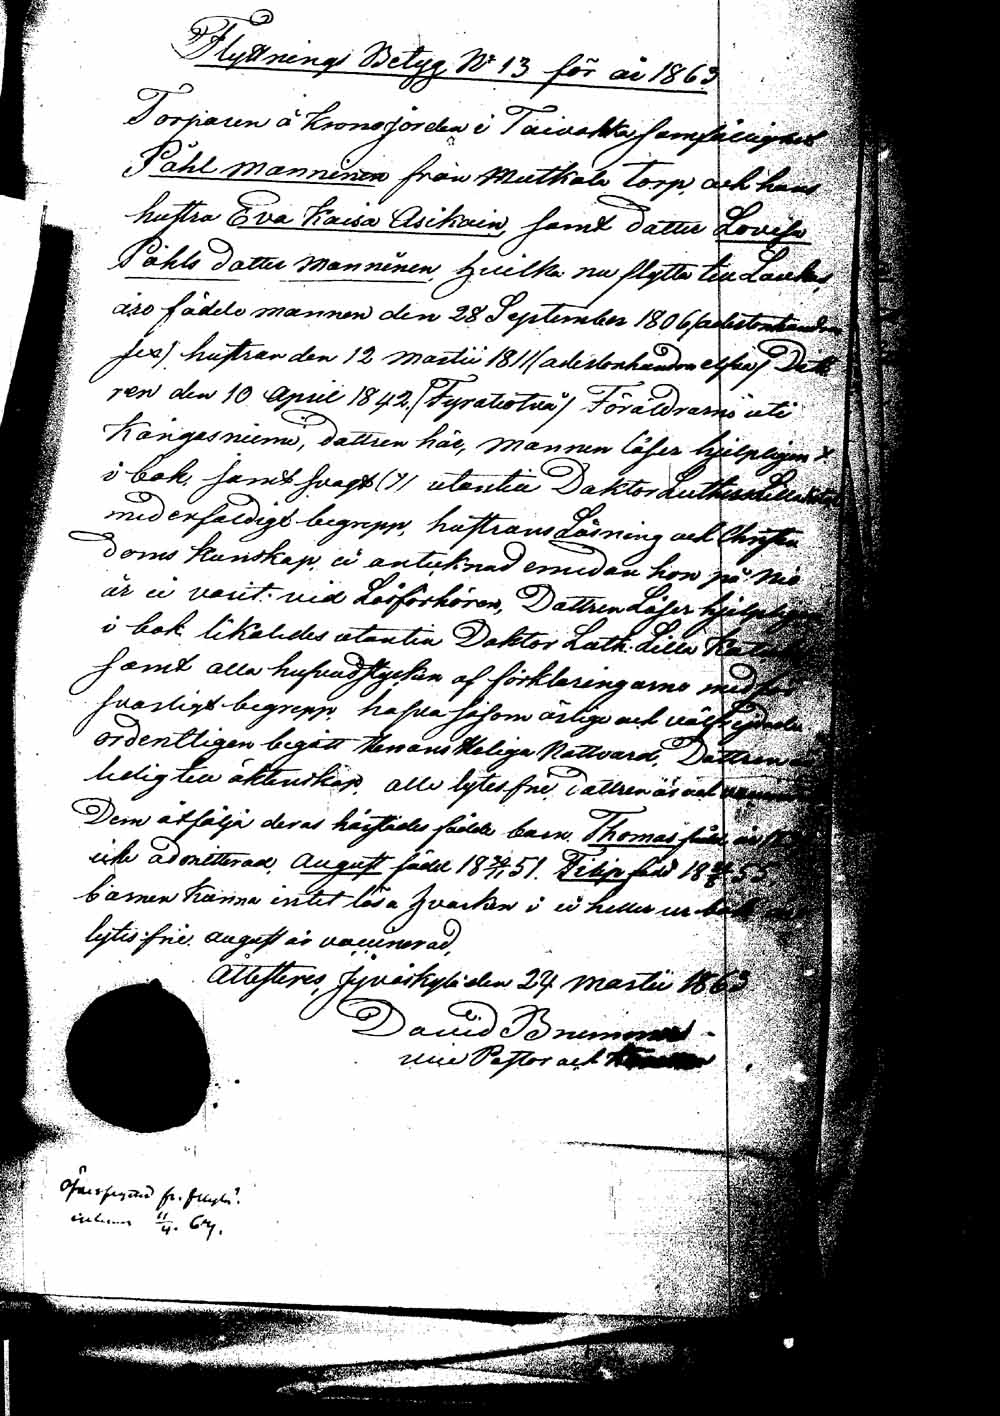 Flyttnings Betyg No 13 för år 1863
Torparen å Kronojorden i Taivahka samfällighet
Påhl Manninen från Mutkala torp, och hans
hustru Eva Kaisa Asikain, samt dotter Lovisa
Påhls dotter Manninen, hvilka nu flytta till Laukas,
äro födde mannen den 28 September 1806 (adertonhundra
sex) hustrun den 12 Martii 1811 (adertonhundra elfva) Dott
ren den 10 April 1842 (Fyratiotvå) Föräldrarne uti
Kangasniemi, dottren här, mannen läser hjelpligen
i bok, samt svagt utantill Doktor Luthers Lilla
med enfaldigt begrepp, hustruns Läsning och Christen
doms kunskap ei antecknad emedan hon på nio
år ei varit vid Läsförhören, Dottren Läser hjelpligen
i bok likaledes utantill Doktor Luth. Lilla
samt alla hufvudstycken af förklaringarne med för
svarligt begrepp, hafva såsom ärlige och välfrejdade
ordentligen begått Herrans Heliga Nattvard, Dottren är
ledig till äktenskap, alla lytesfrie, dottren är ock
Dem åtfölja deras härstädes födde barn, Thomas
icke admitterad, August född 18 51. Filip född 18 55
barnen känna intet läsa hvarken i ei heller ur bok
lytesfrie. August är vaccinerad,
Attesteras, Jyväskylä den 24 Martii 1863
David Brummer
vice Pastor och
11/4. 64.